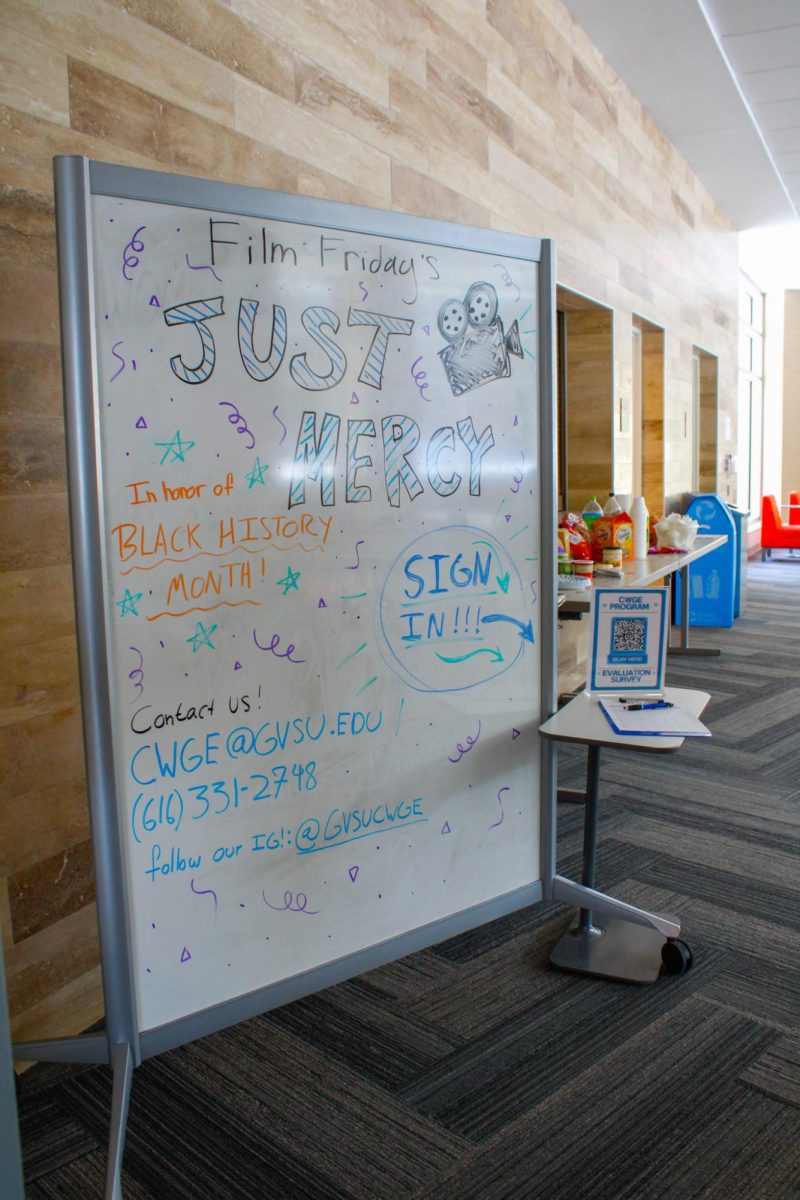 Film Friday's
JUST
MERCY
In honor of
BLACK HISTORY
MONTH!
SIGN
IN!!!
Contact us!
CWGE@GVSU.EDU
(616) 331-2748
follow our IG!: @GVSUCWGE
CWGE
PROGRAM
SCAN HERE!
EVALUATION
SURVEY